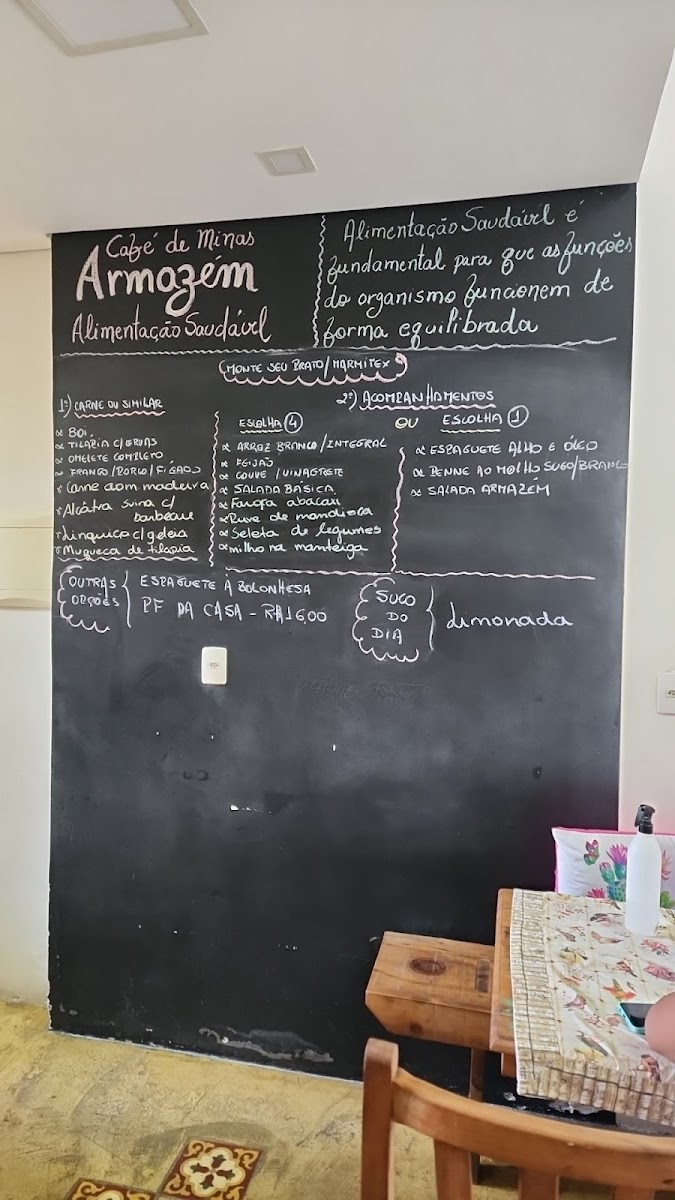 Café de Minas
Armazém
Alimentação Saudável
Alimentação Saudável é
fundamental para que as funções
do organismo funcionem de
forma equilibrada
MONTE SEU PRATO/MARMITEX
1º) CARNE OU SIMILAR
BOI
TILAPIA C/ERVAS
OMELETE COMPLETO
FRANGO/PORCO/FÍGADO
Carne com madeira
Alcatra suina c/
barbecue
Linguiça c/geleia
Muqueca de tilapia
2º) ACOMPANHAMENTOS
ESCOLHA 4
ARROZ BRANCO/INTEGRAL
FEIJÃO
COUVE/VINAGRETE
SALADA BÁSICA
Farofa abacaxi
Pure de mandioca
Seleta de legumes
milho na manteiga
OU
ESCOLHA 1
ESPAGUETE ALHO E ÓLEO
PENNE AO MOLHO SUGO/BRANCO
SALADA ARMAZÉM
OUTRAS
OPÇÕES
ESPAGUETE À BOLONHESA
PF DA CASA - R$16,00
SUCO
DO
DIA
Limonada